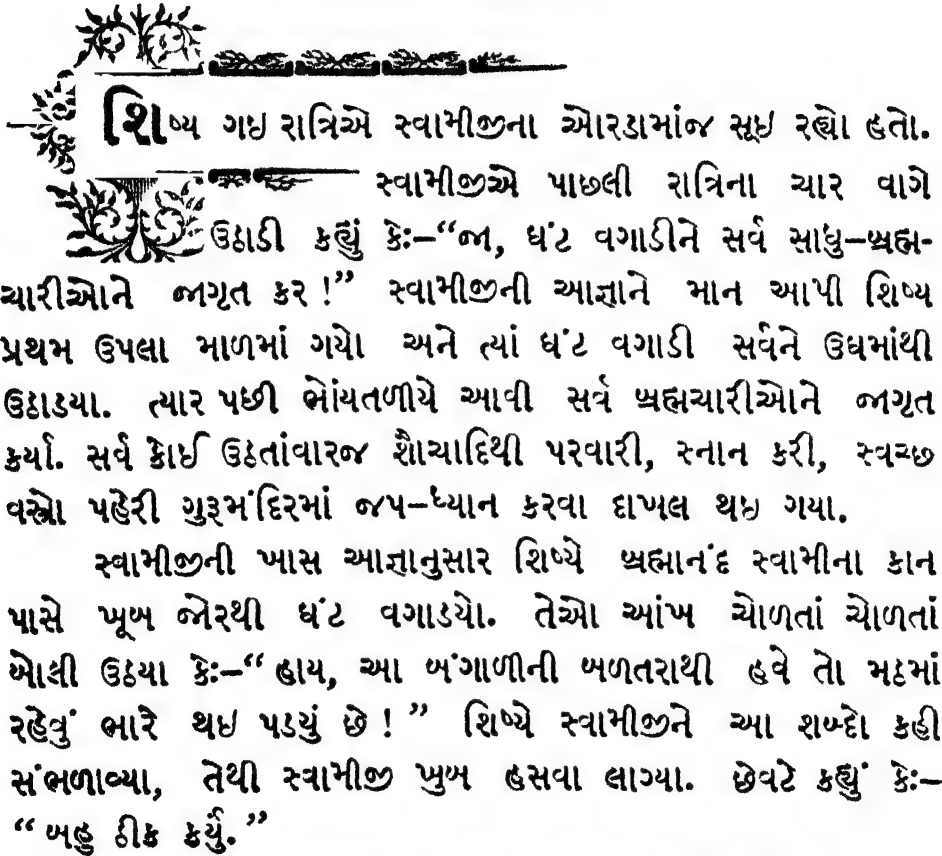 શિષ્ય ગઇ રાત્રિએ સ્વામીજીના ઓરડામાંજ સૂઇ રહ્યો હતો.
સ્વામીજીએ પાછલી રાત્રિના ચાર વાગે
ઉઠાડી કહ્યું કેઃ–“જા, ઘંટ વગાડીને સર્વ સાધુ–બ્રહ્મ-
ચારીઓને જાગૃત કર !” સ્વામીજીની આજ્ઞાને માન આપી શિષ્ય
પ્રથમ ઉપલા માળમાં ગયો અને ત્યાં ઘંટ વગાડી સર્વને ઉઘમાંથી
ઉઠાડયા. ત્યાર પછી ભોંયતળીયે આવી સર્વ બ્રહ્મચારીઓને જાગૃત
કર્યા. સર્વ કોઈ ઉઠતાંવારજ શૌચાદિથી પરવારી, સ્નાન કરી, સ્વચ્છ
વસ્ત્રો પહેરી ગુરૂમંદિરમાં જપ–ધ્યાન કરવા દાખલ થઇ ગયા.
સ્વામીજીની ખાસ આજ્ઞાનુસાર શિષ્યે બ્રહ્માનંદ સ્વામીના કાન
પાસે ખૂબ જોરથી ઘંટ વગાડયો. તેઓ આંખ ચોળતાં ચોળતાં
બોલી ઉઠયા કેઃ–“ હાય, આ બંગાળીની બળતરાથી હવે તો મઠમાં
રહેવું ભારે થઇ પડયું છે ! ” શિષ્યે સ્વામીજીને આ શબ્દો કહી
સંભળાવ્યા, તેથી સ્વામીજી ખુબ હસવા લાગ્યા. છેવટે કહ્યું કેઃ–
“ બહુ ઠીક કર્યું. ”